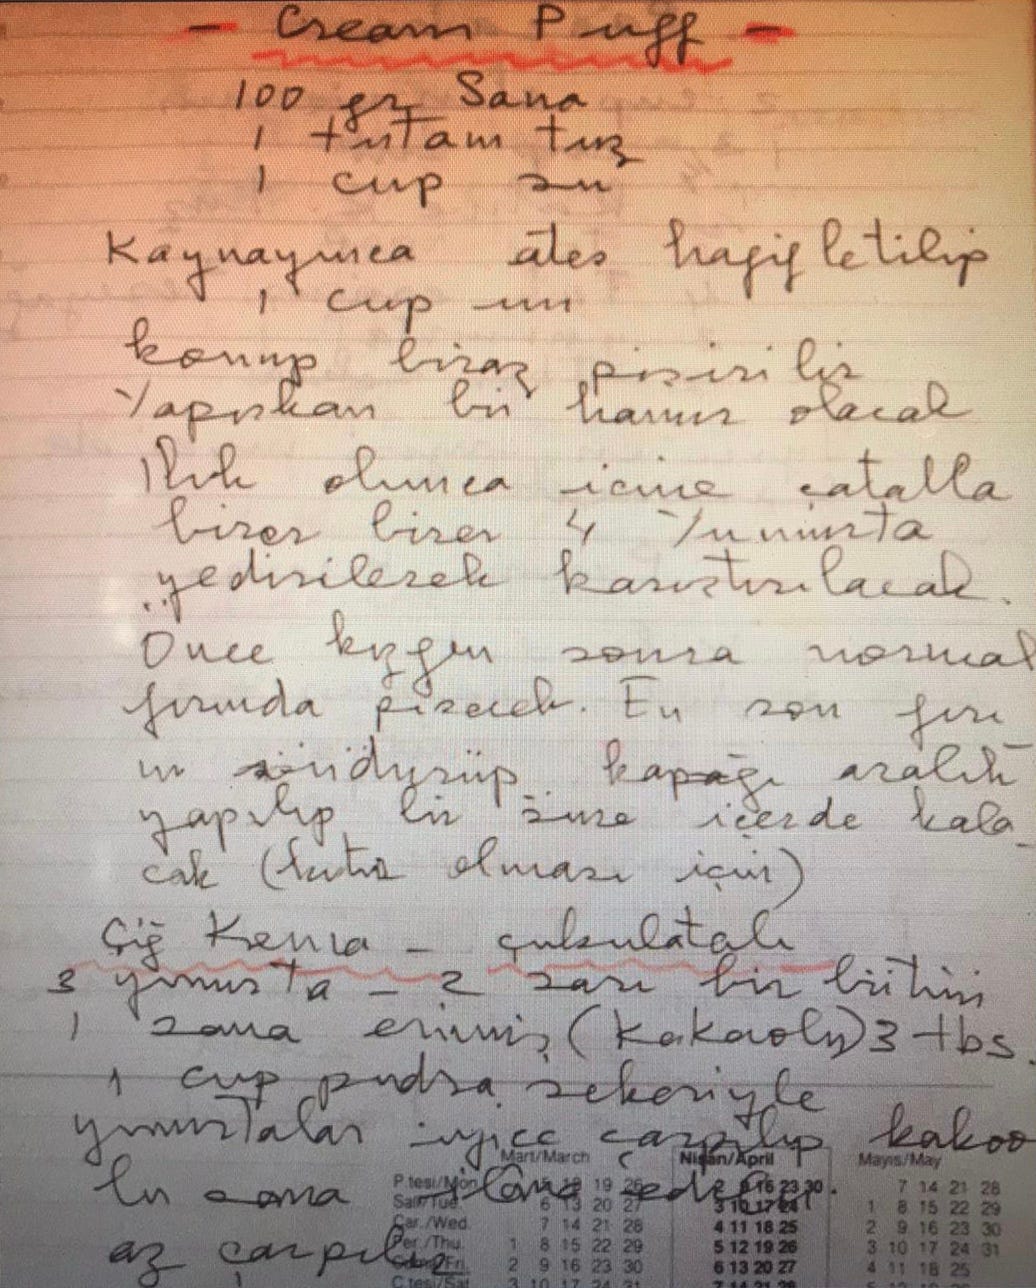 - Cream Puff -
100 gr Sana
1 tutam tuz
1 cup su
Kaynayınca ateş hafifletilip
1 cup un
konup biraz pişirilir
Yapışkan bir hamur olacak
Ilık olunca içine çatalla
birer birer 4 Yumurta
yedirilerek karıştırılacak.
Önce kızgın sonra normal
fırında pişecek. En son fırı
nı söndürüp kapağı aralık
yapılıp bir süre içerde kala
cak (kıtır olması için)
Çiğ Krema - çukulatalı
3 yumurta - 2 sarı bir bütün
1 sana erimiş (Kakaolu) 3 tbs.
1 cup pudra şekeriyle
yumurtalar iyice çarpılıp kakao
lu sana ilâve edilip
az çarpılır
Mart/March Nisan/April Mayıs/May
P.tesi/Mon. 19 26 2 9 16 23 30 7 14 21 28
Salı/Tue. 6 13 20 27 3 10 17 24 1 8 15 22 29
Çar./Wed. 7 14 21 28 4 11 18 25 2 9 16 23 30
Per./Thu. 1 8 15 22 29 5 12 19 26 3 10 17 24 31
Cuma/Fri. 2 9 16 23 30 6 13 20 27 4 11 18 25
C.tesi/Sat. 3 10 17 24 31 7 14 21 28